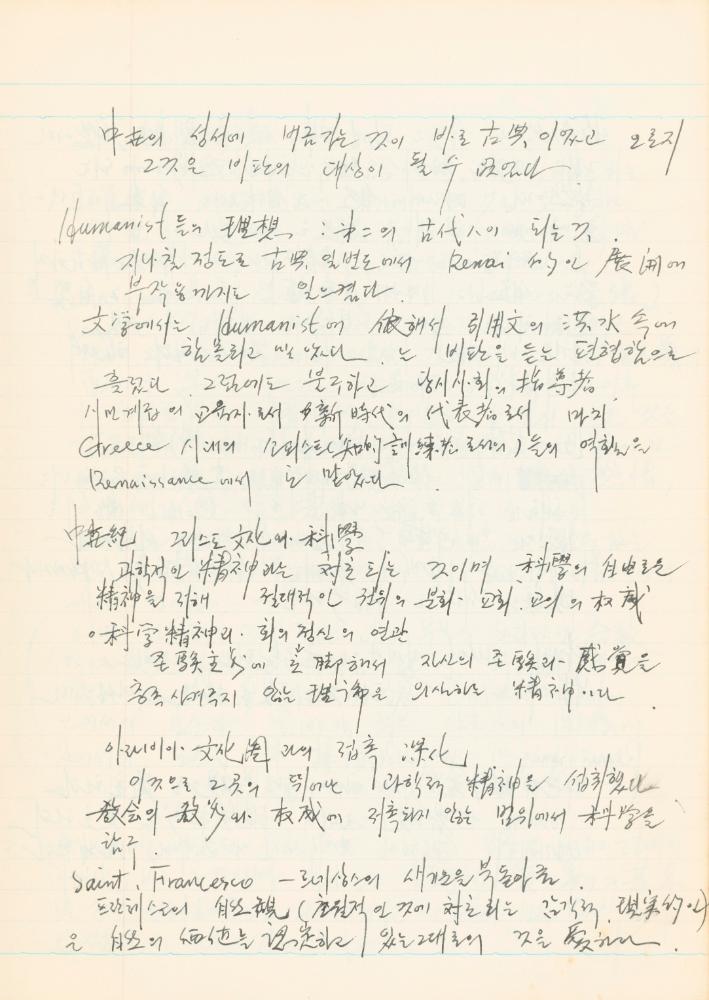 中世의 성서에 버금가는 것이 바로 古典이었고 오로지
그것은 비판의 대상이 될 수 없었다.
Humanist들의 理想 : 第二의 古代人이 되는 것.
지나칠 정도로 古典 일변도에서 Renai 的인 展開에
부작용까지도 일으켰다.
文学에서는 Humanist에 依해서 引用文의 洪水 속에
함몰되고 말았다. 는 비판을 듣는 편협함으로
흘렀다. 그럼에도 불구하고 당시 사회의 指導者,
시민계급의 교육자로서 新時代의 代表者로서 마치
Greece 시대의 소피스트(知的 訓練者로서의)들의 역할을
Renaissance에서 도 맡았다.
中世紀 그리스도文化와 科學
과학적인 精神과는 対立되는 것이며 科學의 自由로운
精神을 저해 절대적인 권위의 문화. 교회. 교의의 权威
科学精神과 회의정신의 연관
경験主义에 立脚해서 자신의 경験과 感覚을
충족시켜주지 않는 理論을 의심하는 精神이다.
아라비아 文化圈과의 접촉 深化
이것으로 그곳의 뛰어난 과학적 精神을 섭취했다
敎会의 敎义와 权威에 저촉되지 않는 범위에서 科学을
탐구.
Saint. Francesco — 르네상스의 새기운을 북돋아줌.
프란체스코의 自然観 ( 본질적인 것에 対立되는 감각적, 現実的인)
은 自然의 価値를 認定하고 있는 그대로의 것을 愛하다.